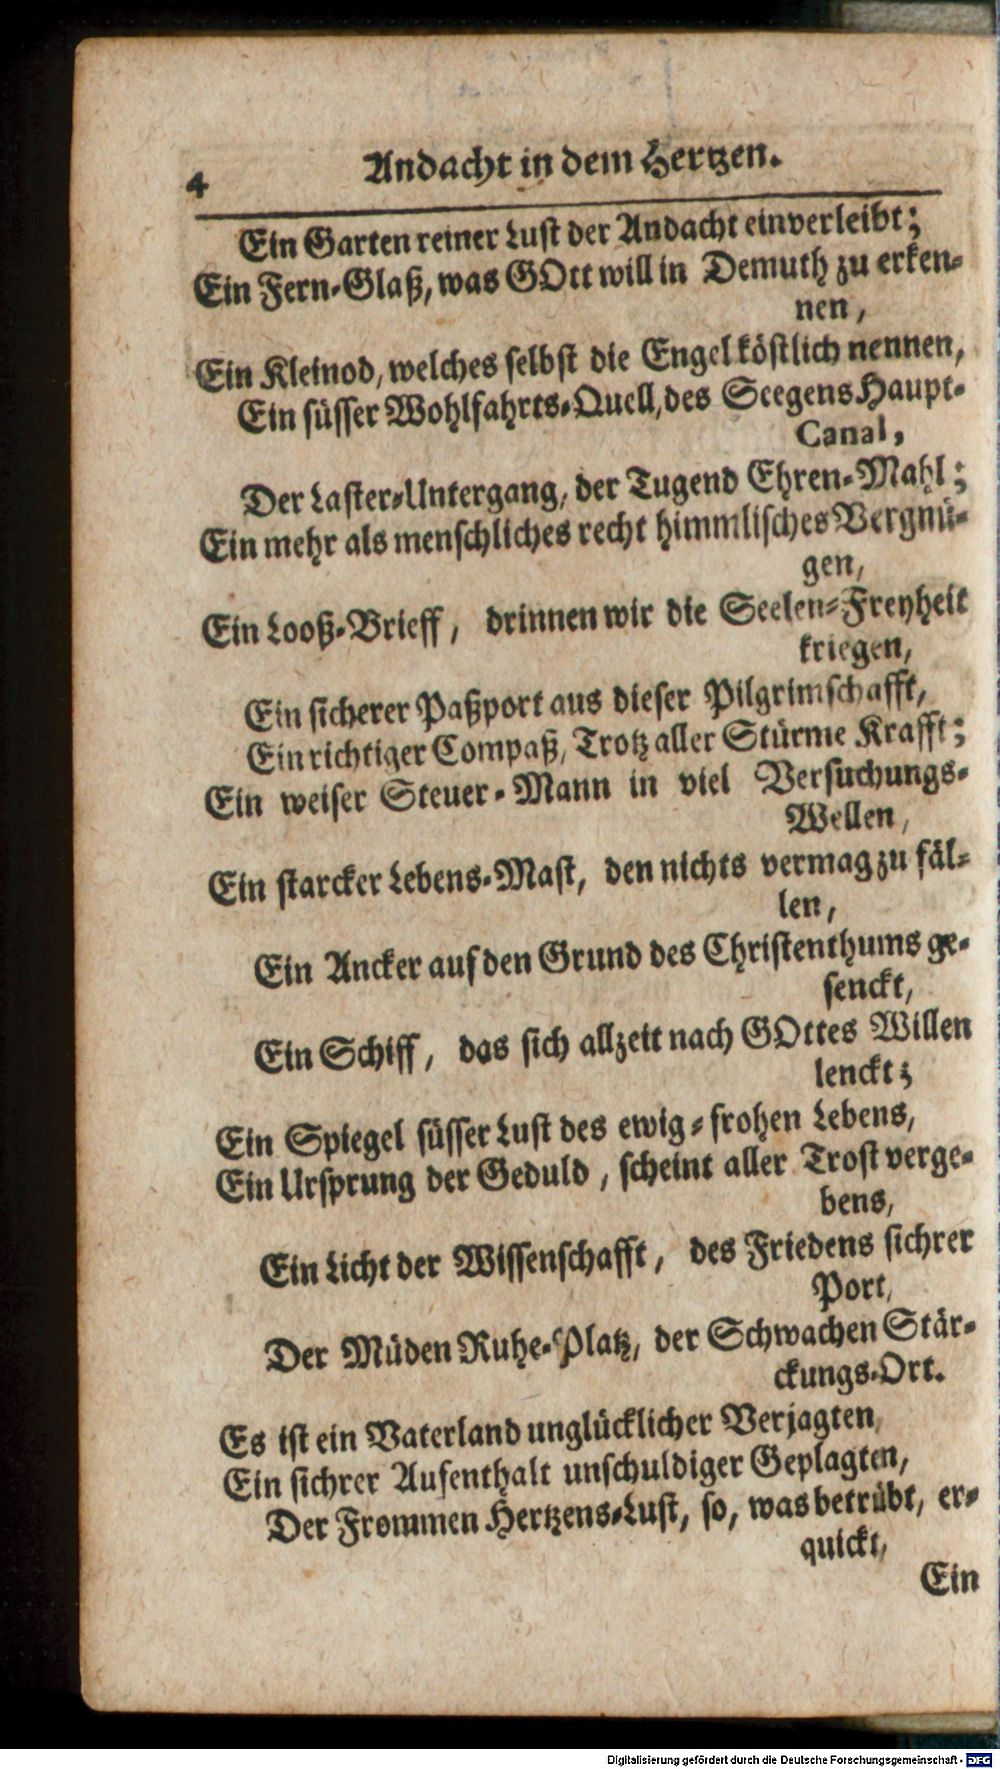 4
Andacht in dem Hertzen.
Ein Garten reiner Lust der Andacht einverleibt;
Ein Fern-Glaß, was GOtt will in Demuth zu erken-
nen,
Ein Kleinod, welches selbst die Engel köstlich nennen,
Ein süsser Wohlfahrts-Quell, des Seegens Haupt-
Canal,
Der Laster-Untergang, der Tugend Ehren-Mahl;
Ein mehr als menschliches recht himmlisches Vergnü-
gen,
Ein Looß-Brieff, drinnen wir die Seelen-Freyheit
kriegen,
Ein sicherer Paßport aus dieser Pilgrimschafft,
Ein richtiger Compaß, Trotz aller Stürme Krafft;
Ein weiser Steuer-Mann in viel Versuchungs-
Wellen,
Ein starcker Lebens-Mast, den nichts vermag zu fäl-
len,
Ein Ancker auf den Grund des Christenthums ge-
senckt,
Ein Schiff, das sich allzeit nach GOttes Willen
lenckt;
Ein Spiegel süsser Lust des ewig-frohen Lebens,
Ein Ursprung der Geduld, scheint aller Trost verge-
bens,
Ein Licht der Wissenschafft, des Friedens sichrer
Port,
Der Müden Ruhe-Platz, der Schwachen Stär-
ckungs-Ort.
Es ist ein Vaterland unglücklicher Verjagten,
Ein sichrer Aufenthalt unschuldiger Geplagten,
Der Frommen Hertzens-Lust, so, was betrübt, er-
quickt,
Ein
Digitalisierung gefördert durch die Deutsche Forschungsgemeinschaft - DFG